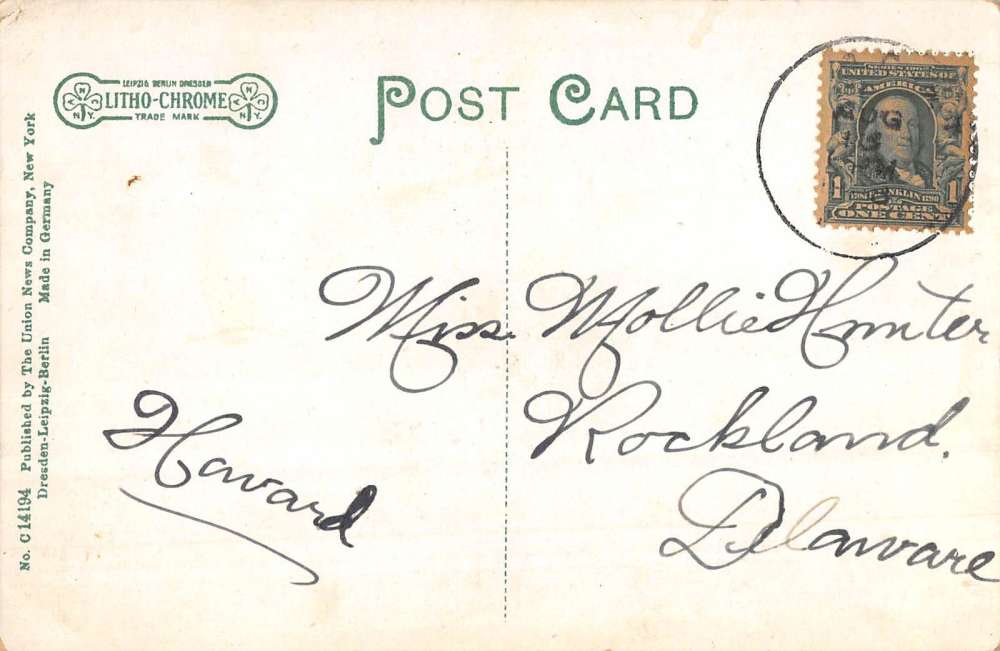 LEIPZIG BERLIN DRESDEN
LITHO-CHROME
TRADE MARK
N.Y.
N.Y.
POST CARD
SERIES 1902
UNITED STATES OF
AMERICA
1 FRANKLIN 1
POSTAGE
ONE CENT
Miss. Mollie Hunter
Rockland.
Delaware
Howard
No. C 14194 Published by The Union News Company, New York
Dresden-Leipzig-Berlin Made in Germany